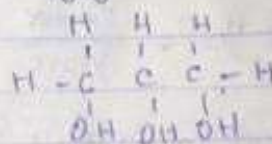 H H H
H - C C C - H
OH OH OH